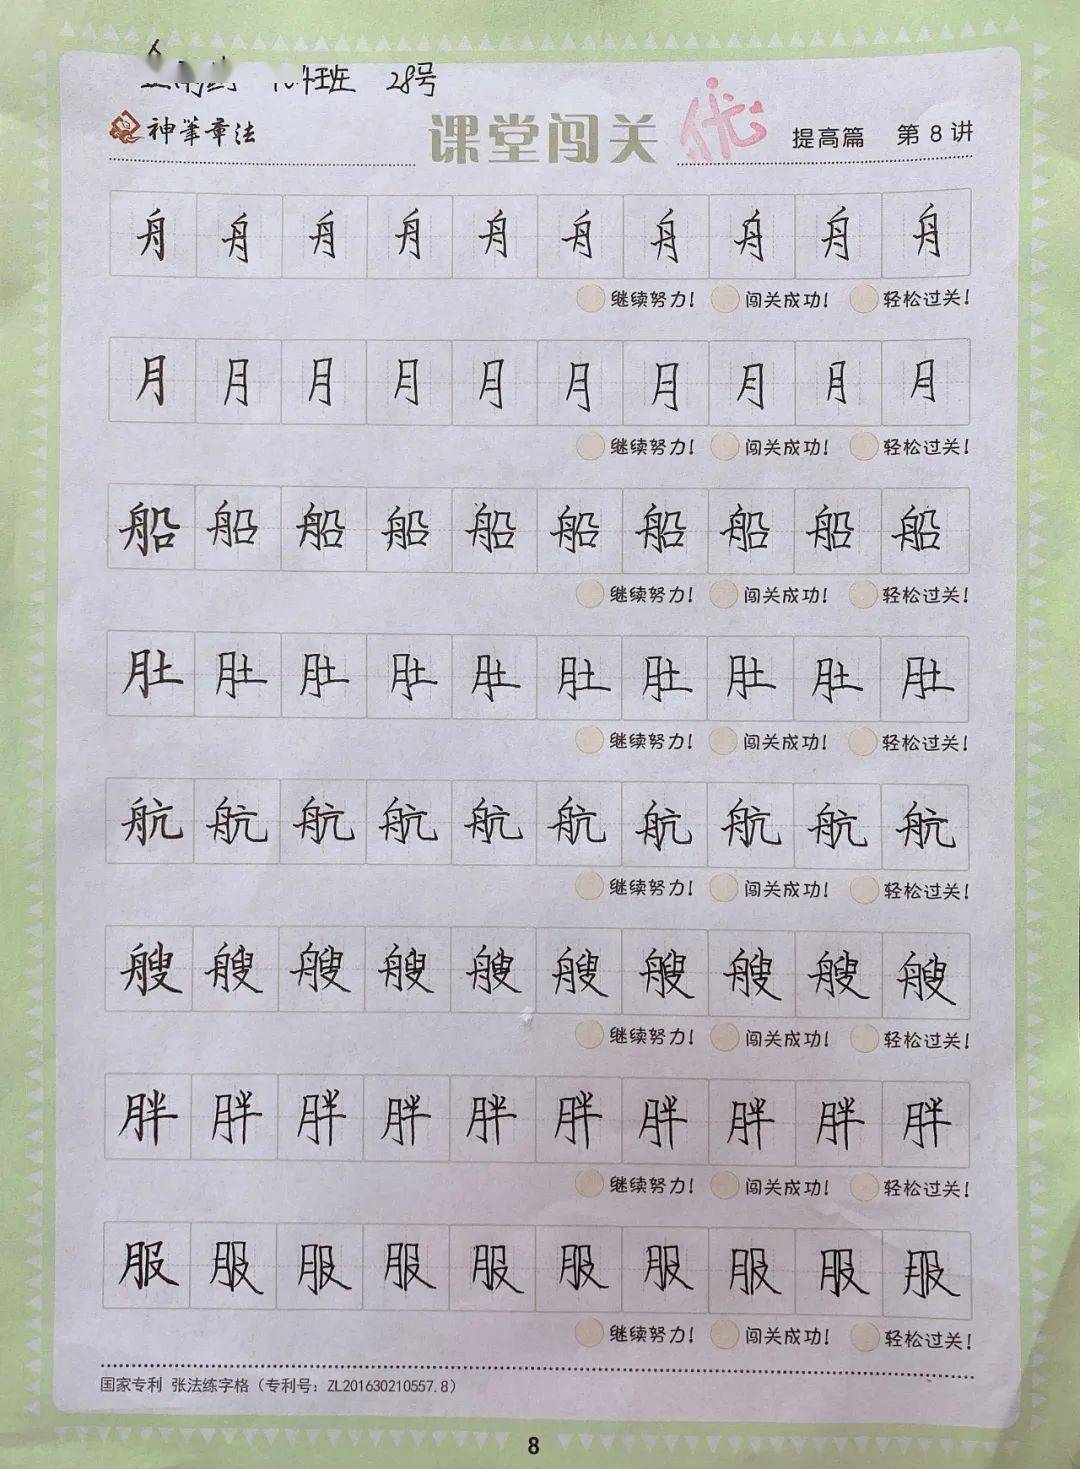 班 28号
神笔章法 课堂闯关 优 提高篇 第8讲
舟 舟 舟 舟 舟 舟 舟 舟 舟 舟
继续努力! 闯关成功! 轻松过关!
月 月 月 月 月 月 月 月 月 月
继续努力! 闯关成功! 轻松过关!
船 船 船 船 船 船 船 船 船 船
继续努力! 闯关成功! 轻松过关!
肚 肚 肚 肚 肚 肚 肚 肚 肚 肚
继续努力! 闯关成功! 轻松过关!
航 航 航 航 航 航 航 航 航 航
继续努力! 闯关成功! 轻松过关!
艘 艘 艘 艘 艘 艘 艘 艘 艘 艘
继续努力! 闯关成功! 轻松过关!
胖 胖 胖 胖 胖 胖 胖 胖 胖 胖
继续努力! 闯关成功! 轻松过关!
服 服 服 服 服 服 服 服 服 服
继续努力! 闯关成功! 轻松过关!
国家专利 张法练字格(专利号:ZL201630210557.8)
8